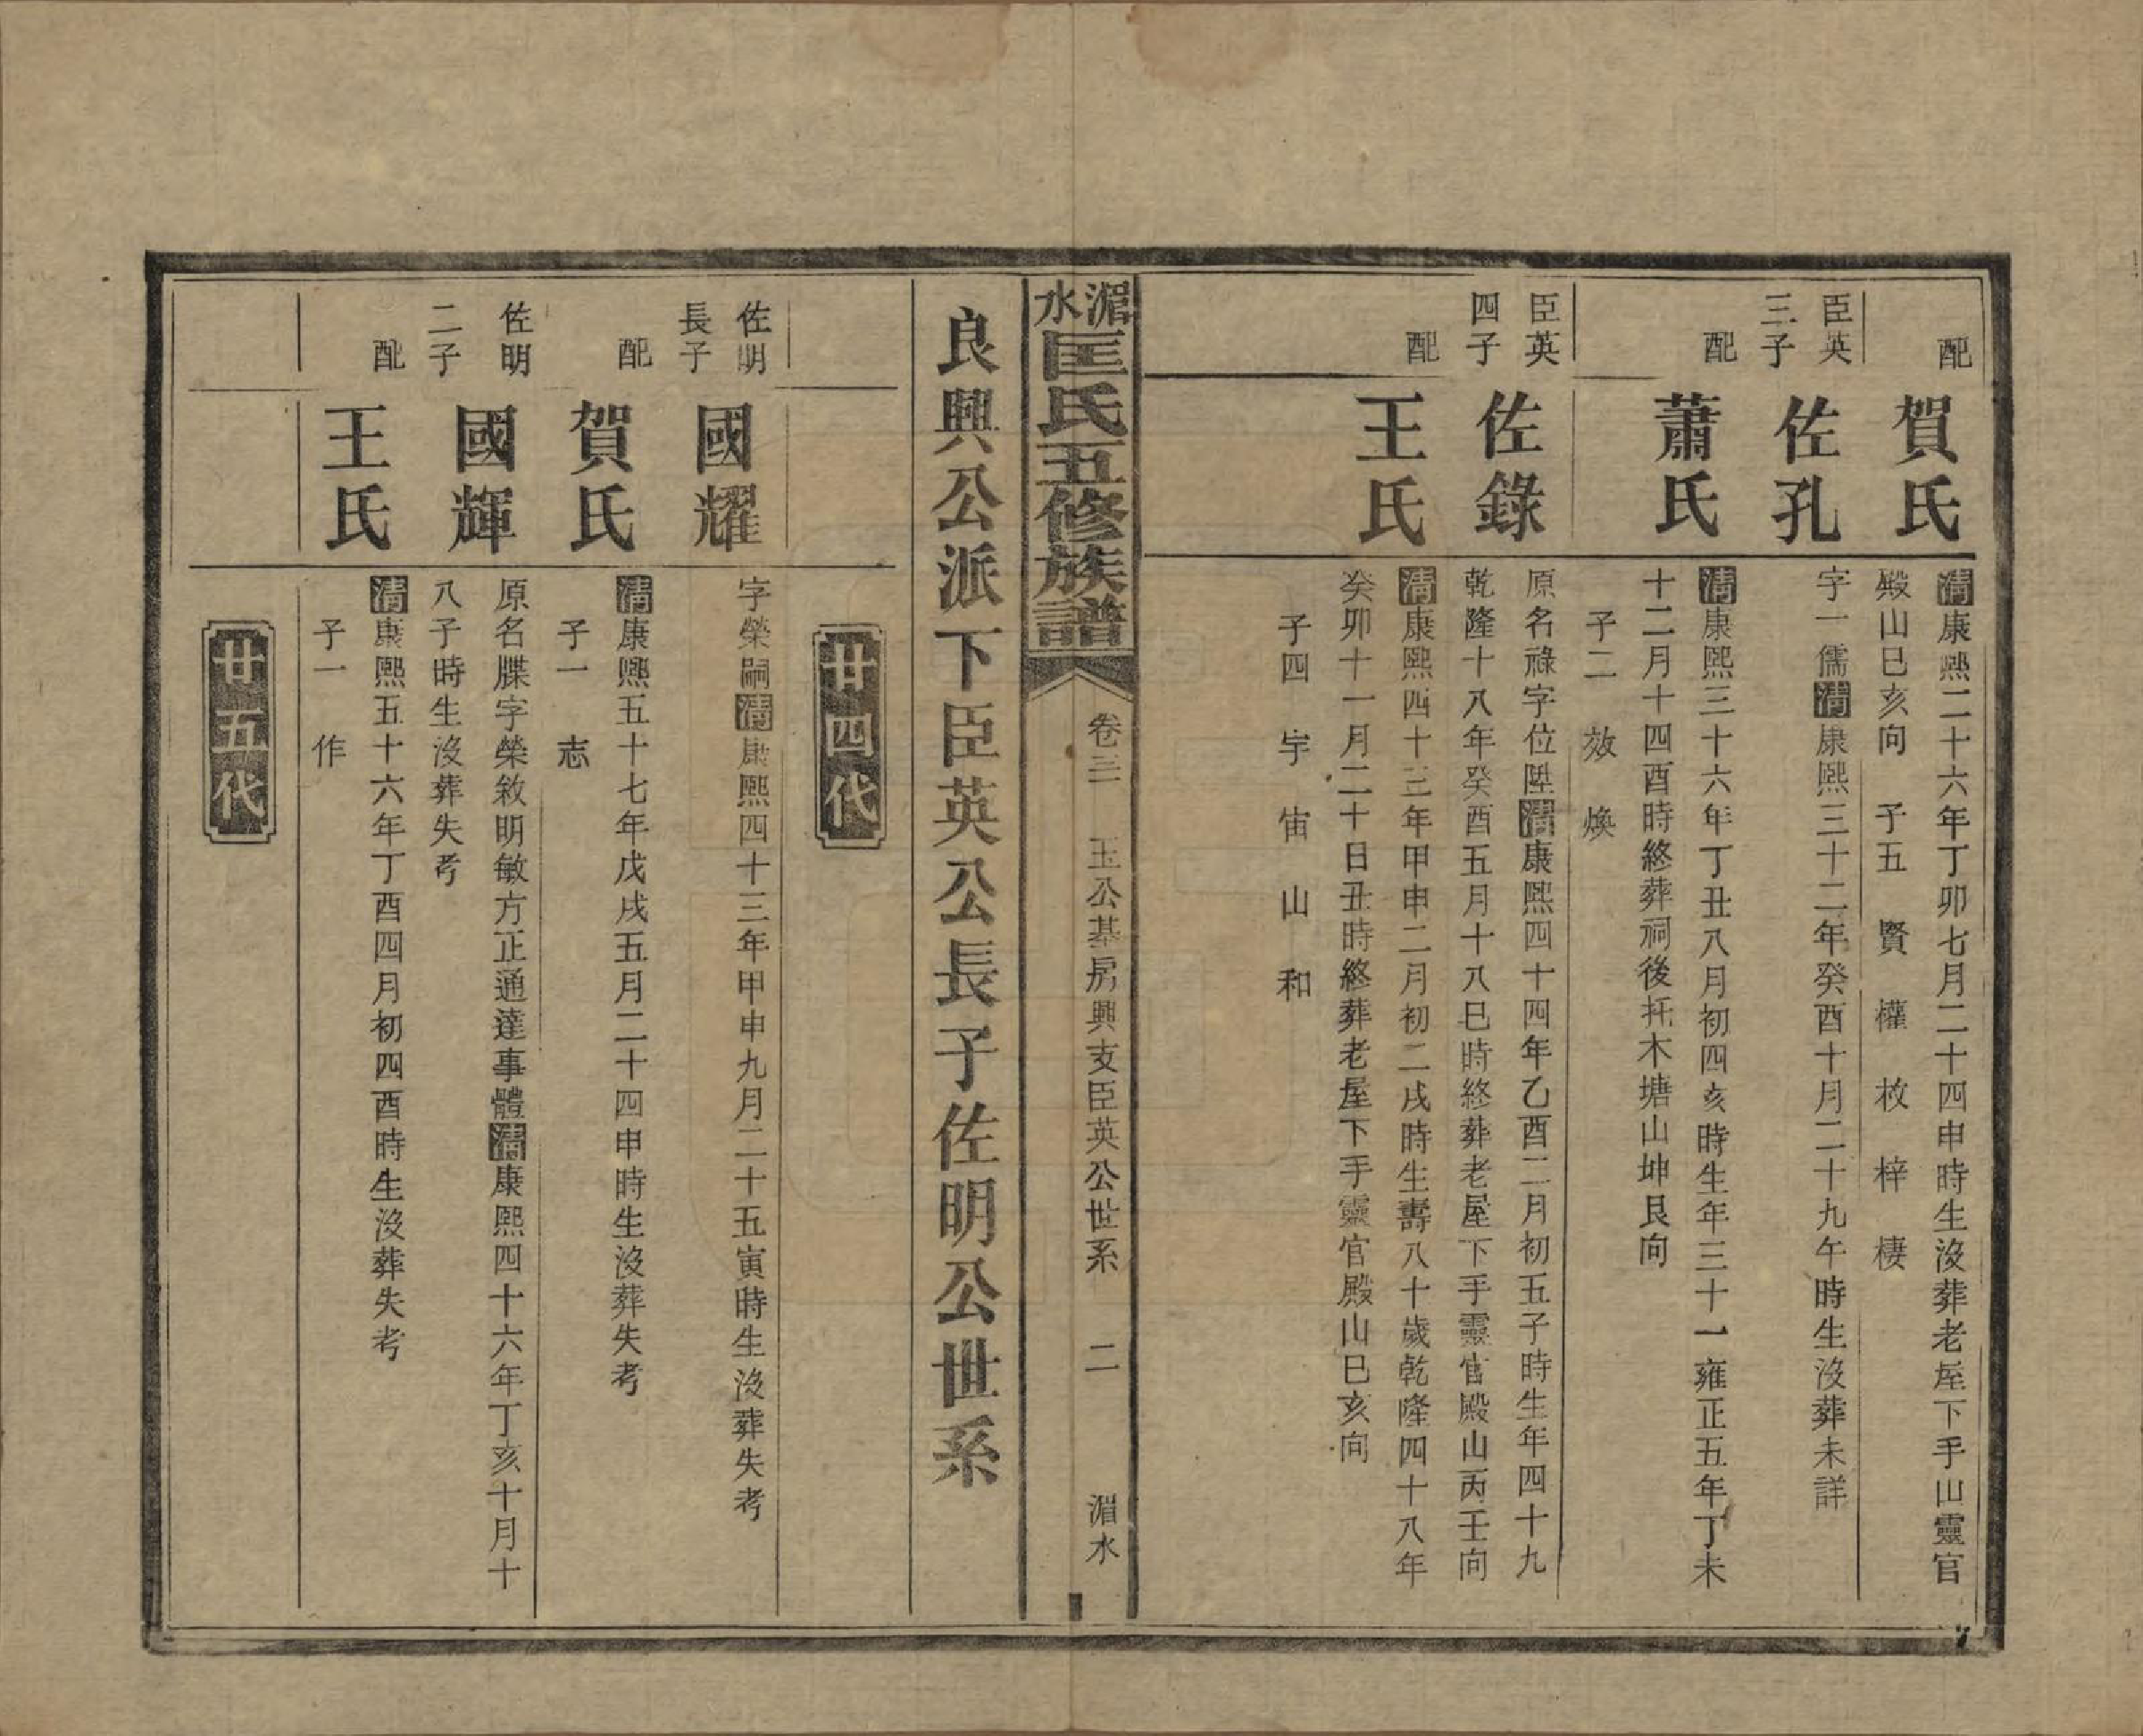 配
賀氏
清康熙二十六年丁卯七月二十四申時生沒葬老屋下手山靈官
殿山巳亥向　子五　賢　權　枚　梓　棲
臣英
三子
佐孔
字一儒清康熙三十二年癸酉十月二十九午時生沒葬未詳
配
蕭氏
清康熙三十六年丁丑八月初四亥時生年三十一雍正五年丁未
十二月十四酉時終葬祠後托木塘山坤艮向
子二　效　煥
臣英
四子
佐錄
原名祿字位陞清康熙四十四年乙酉二月初五子時生年四十九
乾隆十八年癸酉五月十八巳時終葬老屋下手靈官殿山丙壬向
配
王氏
清康熙四十三年甲申二月初二戌時生壽八十歲乾隆四十八年
癸卯十一月二十日丑時終葬老屋下手靈官殿山巳亥向
子四　宇　宙　山　和
湄水匡氏五修族譜
卷三　玉公基房興支臣英公世系　二　湄水
良興公派下臣英公長子佐明公世系
廿四代
佐明
長子
國耀
字榮嗣清康熙四十三年甲申九月二十五寅時生沒葬失考
配
賀氏
清康熙五十七年戊戌五月二十四申時生沒葬失考
子一　志
佐明
二子
國輝
原名牒字榮敘明敏方正通達事體清康熙四十六年丁亥十月十
八子時生沒葬失考
配
王氏
清康熙五十六年丁酉四月初四酉時生沒葬失考
子一　作
廿五代